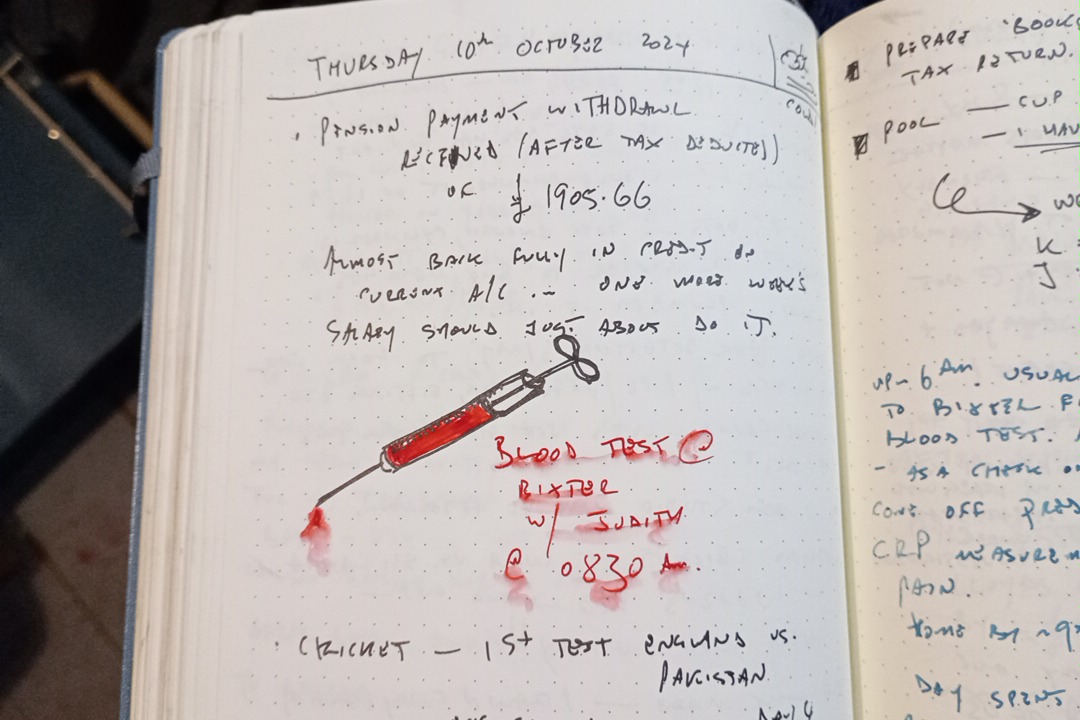 THURSDAY 10th OCTOBER 2024
COLD
· PENSION PAYMENT WITHDRAWL
RECEIVED (AFTER TAX DEDUCTED)
OF £ 1905.66
ALMOST BACK FULLY IN CREDIT ON
CURRENT A/C ... ONE MORE WEEK'S
SALARY SHOULD JUST ABOUT DO IT.
BLOOD TEST @
BIXTER
W/ JUDITH
@ 0830 Am.
· CRICKET — 1st TEST ENGLAND vs.
PAKISTAN
DAY 4
PREPARE 'BOOKS
TAX RETURN.
POOL — CUP
— 1
K
J
UP ~ 6 Am. USUAL
TO BIXTER F
BLOOD TEST.
- AS A CHECK
COME OFF PRED
CRP MEASUREM
PAIN.
HOME BY ~ 9
DAY SPENT